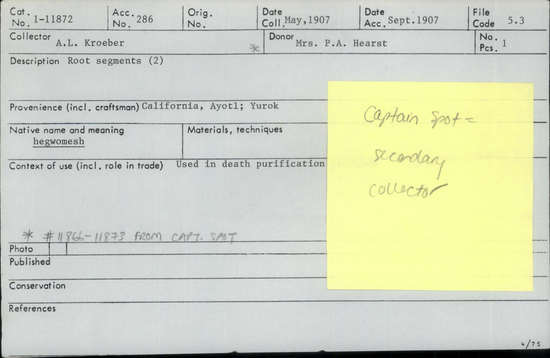 Cat. No. 1-11872 Acc. No. 286 Orig. No. Date Coll. May, 1907 Date Acc. Sept. 1907 File Code 5.3
Collector A.L. Kroeber * Donor Mrs. P.A. Hearst No. Pcs. 1
Description Root segments (2)
Provenience (incl. craftsman) California, Ayotl; Yurok
Native name and meaning Materials, techniques
hegwomesh
Context of use (incl. role in trade) Used in death purification
* #11866-11873 FROM CAPT. SPOT
Photo
Published
Conservation
References
4/75
Captain Spot =
secondary
collector